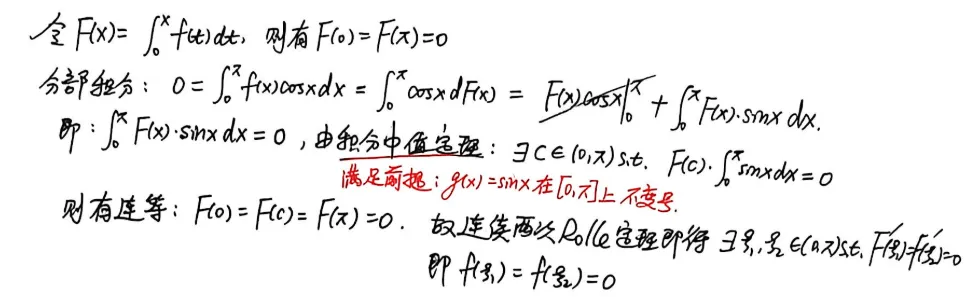 令 F(x)= ∫₀ˣ f(t)dt, 则有 F(0)=F(π)=0
分部积分: 0=∫₀^π f(x)cosxdx = ∫₀^π cosx dF(x) = F(x)cosx|₀^π + ∫₀^π F(x)·sinx dx.
即: ∫₀^π F(x)·sinx dx=0, 由积分中值定理: ∃ C∈(0,π) s.t. F(c)·∫₀^π sinxdx=0
满足前提: g(x)=sinx 在[0,π]上不变号.
则有连等: F(0)=F(c)=F(π)=0. 故连续两次Rolle定理即得 ∃ ξ₁,ξ₂∈(0,π) s.t. F'(ξ₁)=F'(ξ₂)=0
即 f(ξ₁)=f(ξ₂)=0